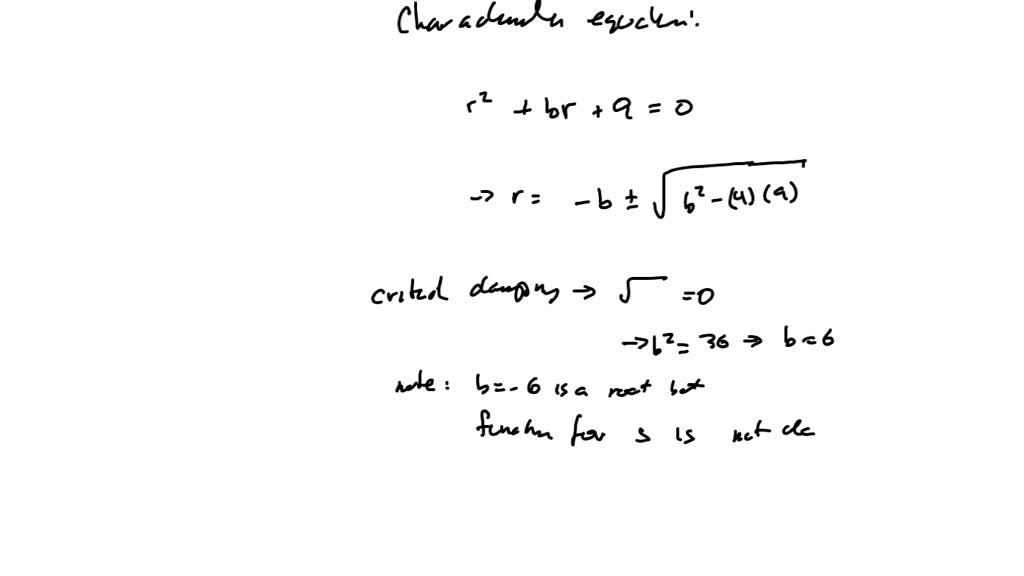 Characteristic equation:
r² + br + 9 = 0
→ r = -b ± √(b² - (4)(9))
critical damping → √ = 0
→ b² = 36 → b = 6
note: b = -6 is a root but
function for s is not da